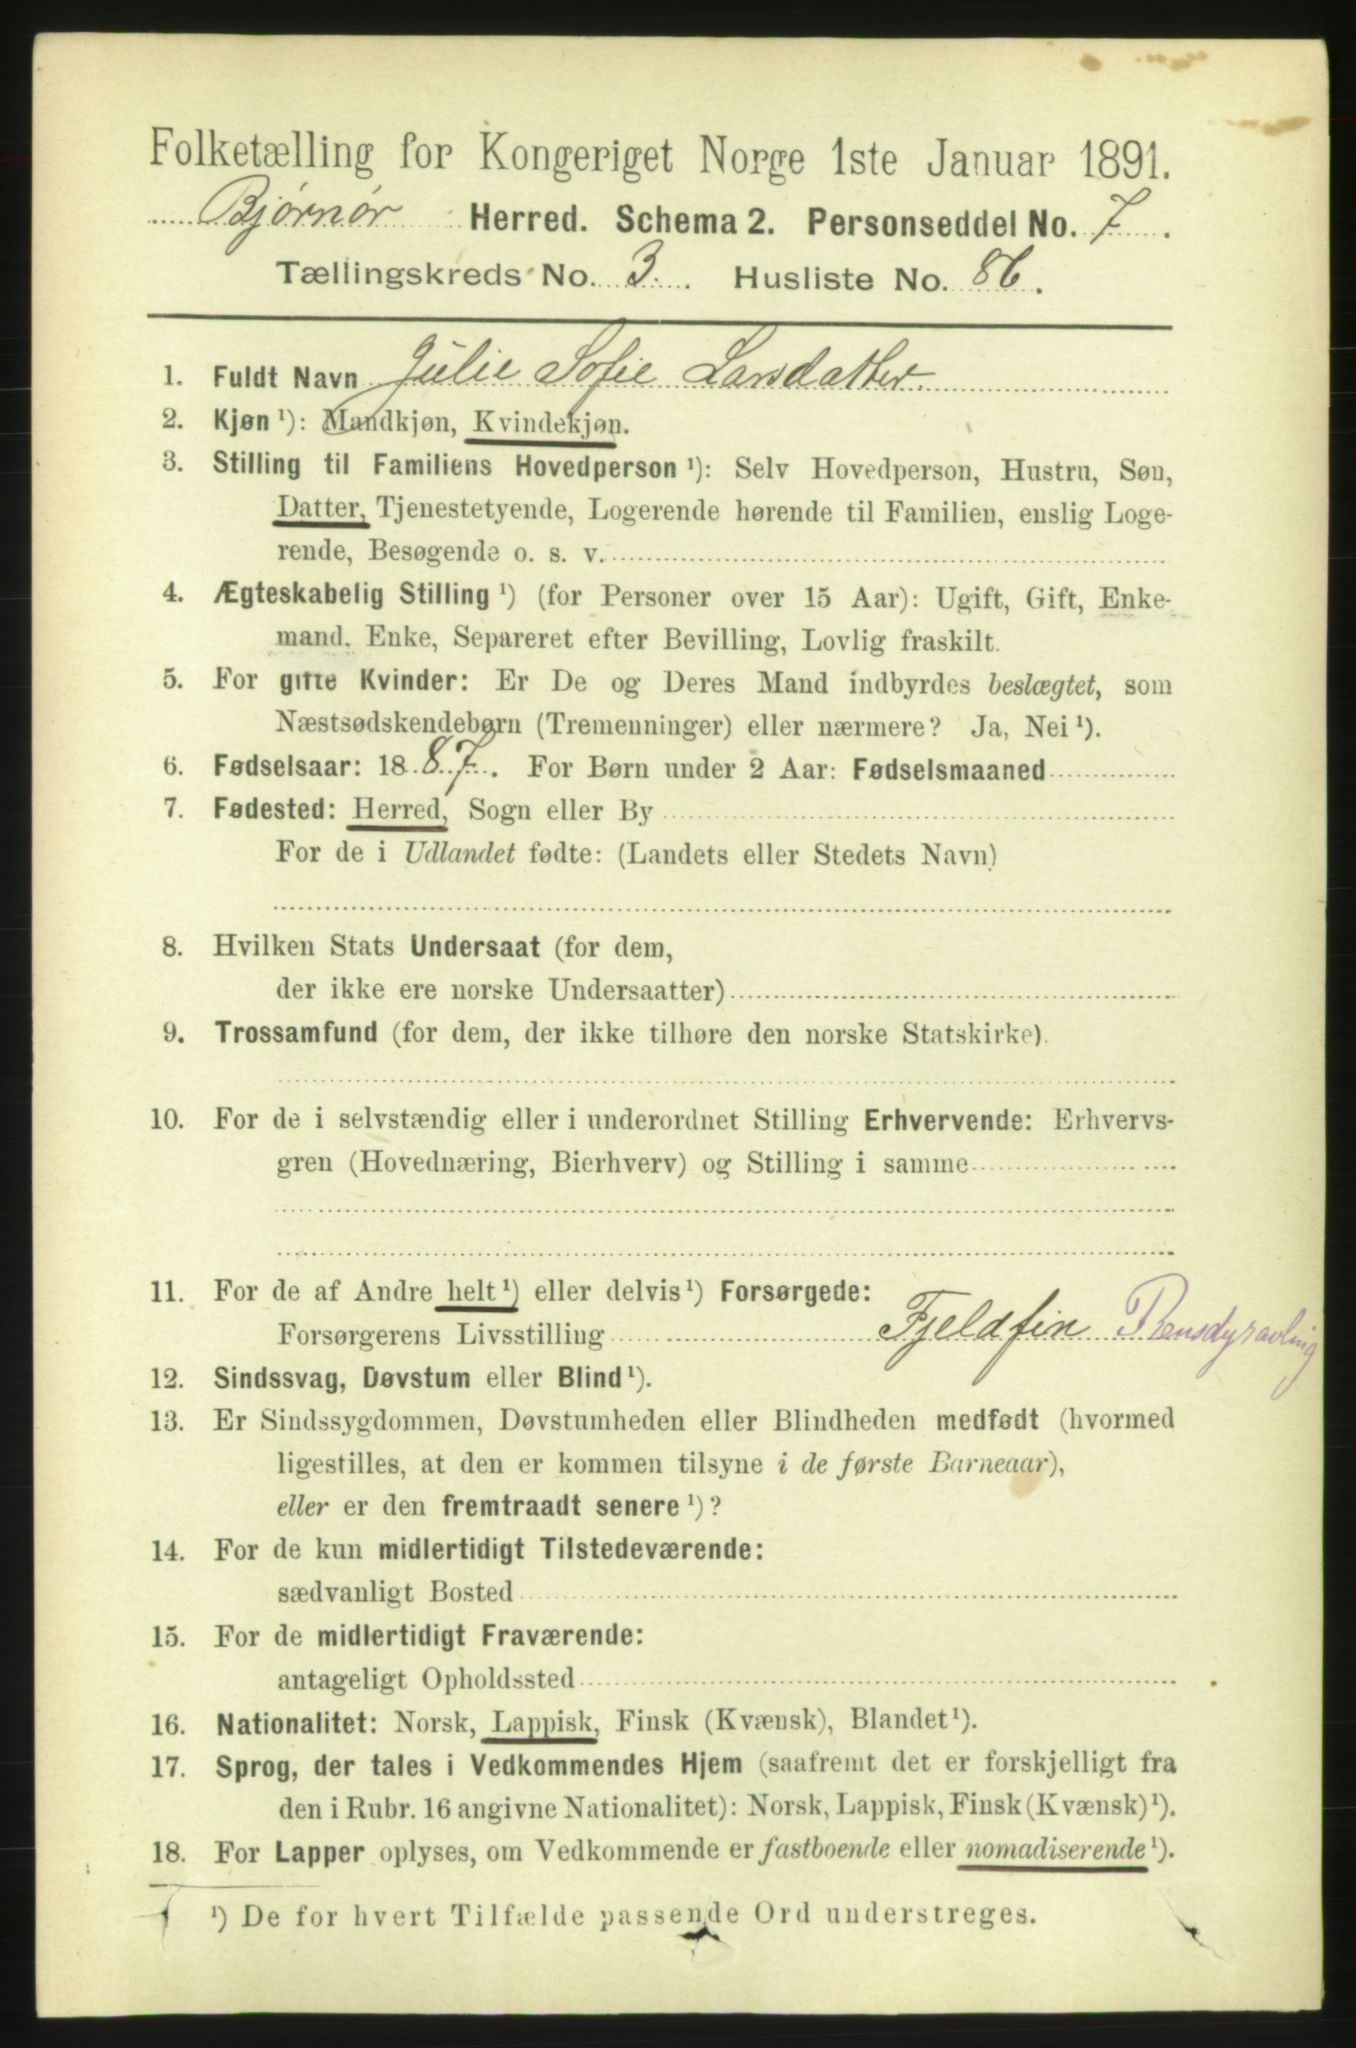 Folketælling for Kongeriget Norge 1ste Januar 1891.
Bjørnør Herred. Schema 2. Personseddel No. 7.
Tællingskreds No. 3. Husliste No. 86.
1. Fuldt Navn Julie Sofie Larsdatter.
2. Kjøn ¹): Mandkjøn, Kvindekjøn.
3. Stilling til Familiens Hovedperson ¹): Selv Hovedperson, Hustru, Søn,
Datter, Tjenestetyende, Logerende hørende til Familien, enslig Loge-
rende, Besøgende o. s. v.
4. Ægteskabelig Stilling ¹) (for Personer over 15 Aar): Ugift, Gift, Enke-
mand, Enke, Separeret efter Bevilling, Lovlig fraskilt.
5. For gifte Kvinder: Er De og Deres Mand indbyrdes beslægtet, som
Næstsødskendebørn (Tremenninger) eller nærmere? Ja, Nei ¹).
6. Fødselsaar: 1887. For Børn under 2 Aar: Fødselsmaaned
7. Fødested: Herred, Sogn eller By
For de i Udlandet fødte: (Landets eller Stedets Navn)
8. Hvilken Stats Undersaat (for dem,
der ikke ere norske Undersaatter)
9. Trossamfund (for dem, der ikke tilhøre den norske Statskirke).
10. For de i selvstændig eller i underordnet Stilling Erhvervende: Erhvervs-
gren (Hovednæring, Bierhverv) og Stilling i samme
11. For de af Andre helt ¹) eller delvis ¹) Forsørgede:
Forsørgerens Livsstilling Fjeldfin Rensdyravling
12. Sindssvag, Døvstum eller Blind ¹).
13. Er Sindssygdommen, Døvstumheden eller Blindheden medfødt (hvormed
ligestilles, at den er kommen tilsyne i de første Barneaar),
eller er den fremtraadt senere ¹)?
14. For de kun midlertidigt Tilstedeværende:
sædvanligt Bosted
15. For de midlertidigt Fraværende:
antageligt Opholdssted
16. Nationalitet: Norsk, Lappisk, Finsk (Kvænsk), Blandet ¹).
17. Sprog, der tales i Vedkommendes Hjem (saafremt det er forskjelligt fra
den i Rubr. 16 angivne Nationalitet): Norsk, Lappisk, Finsk (Kvænsk) ¹).
18. For Lapper oplyses, om Vedkommende er fastboende eller nomadiserende ¹).
¹) De for hvert Tilfælde passende Ord understreges.